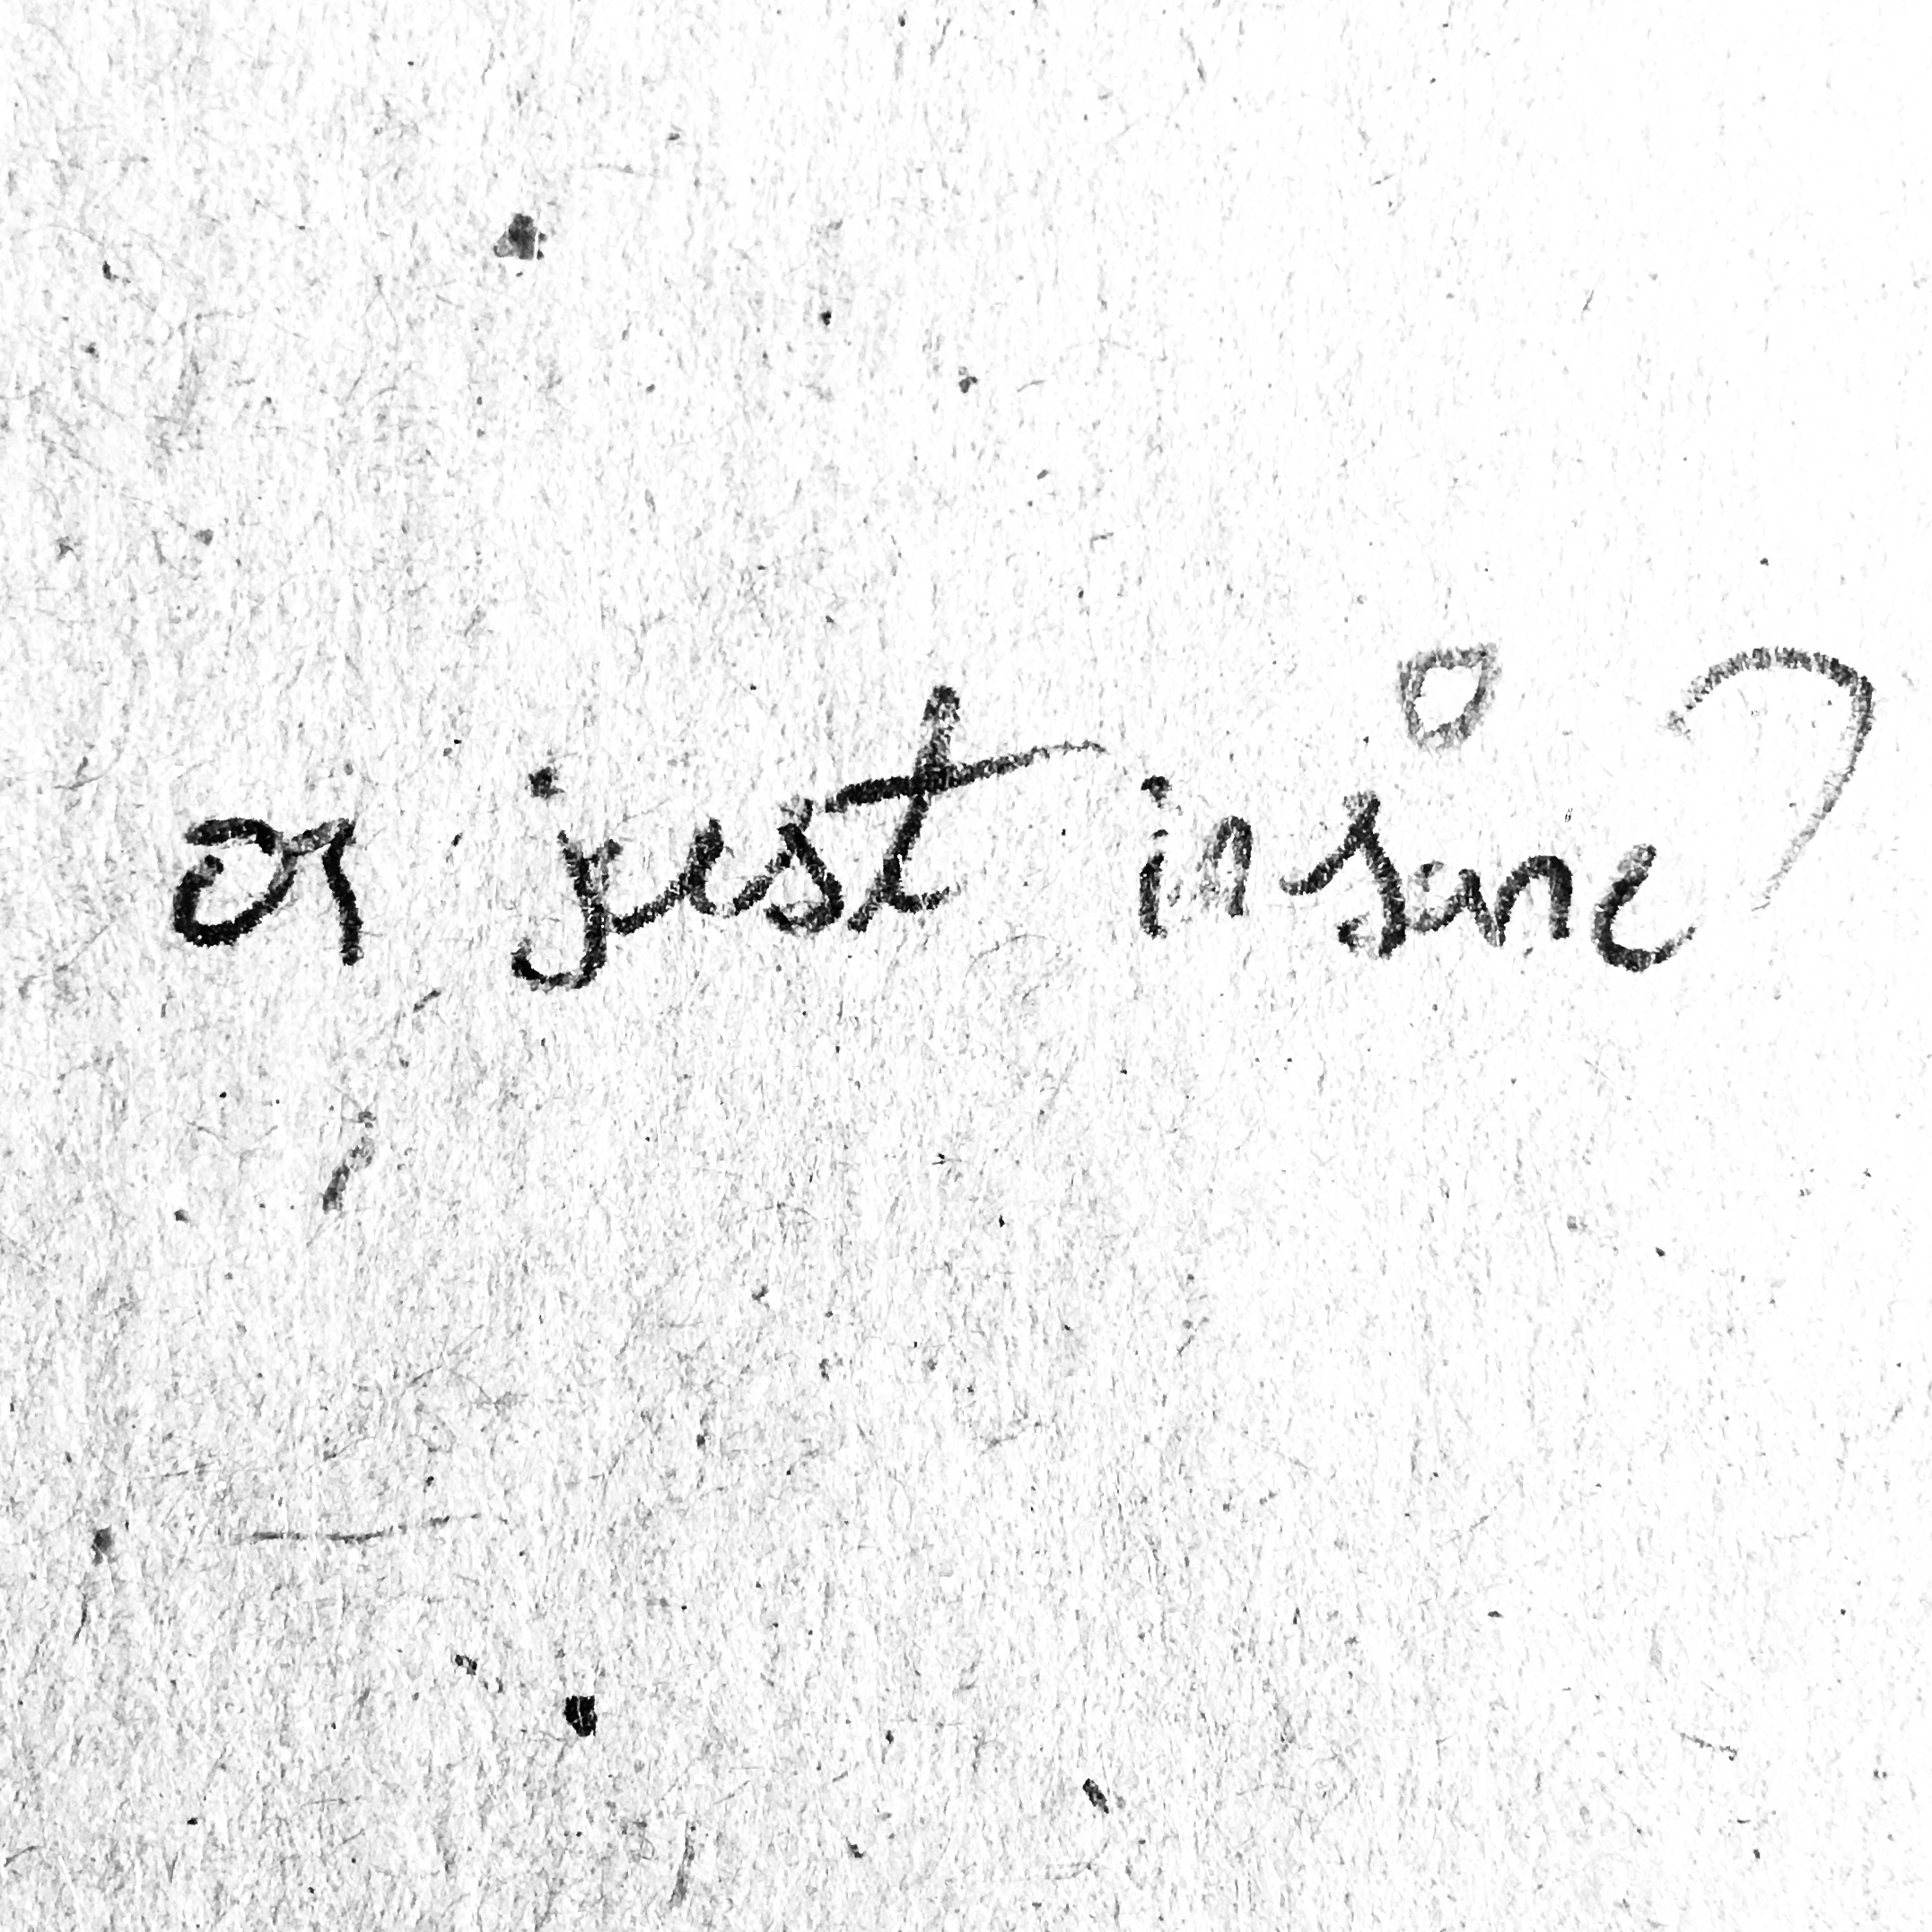 or just insane?